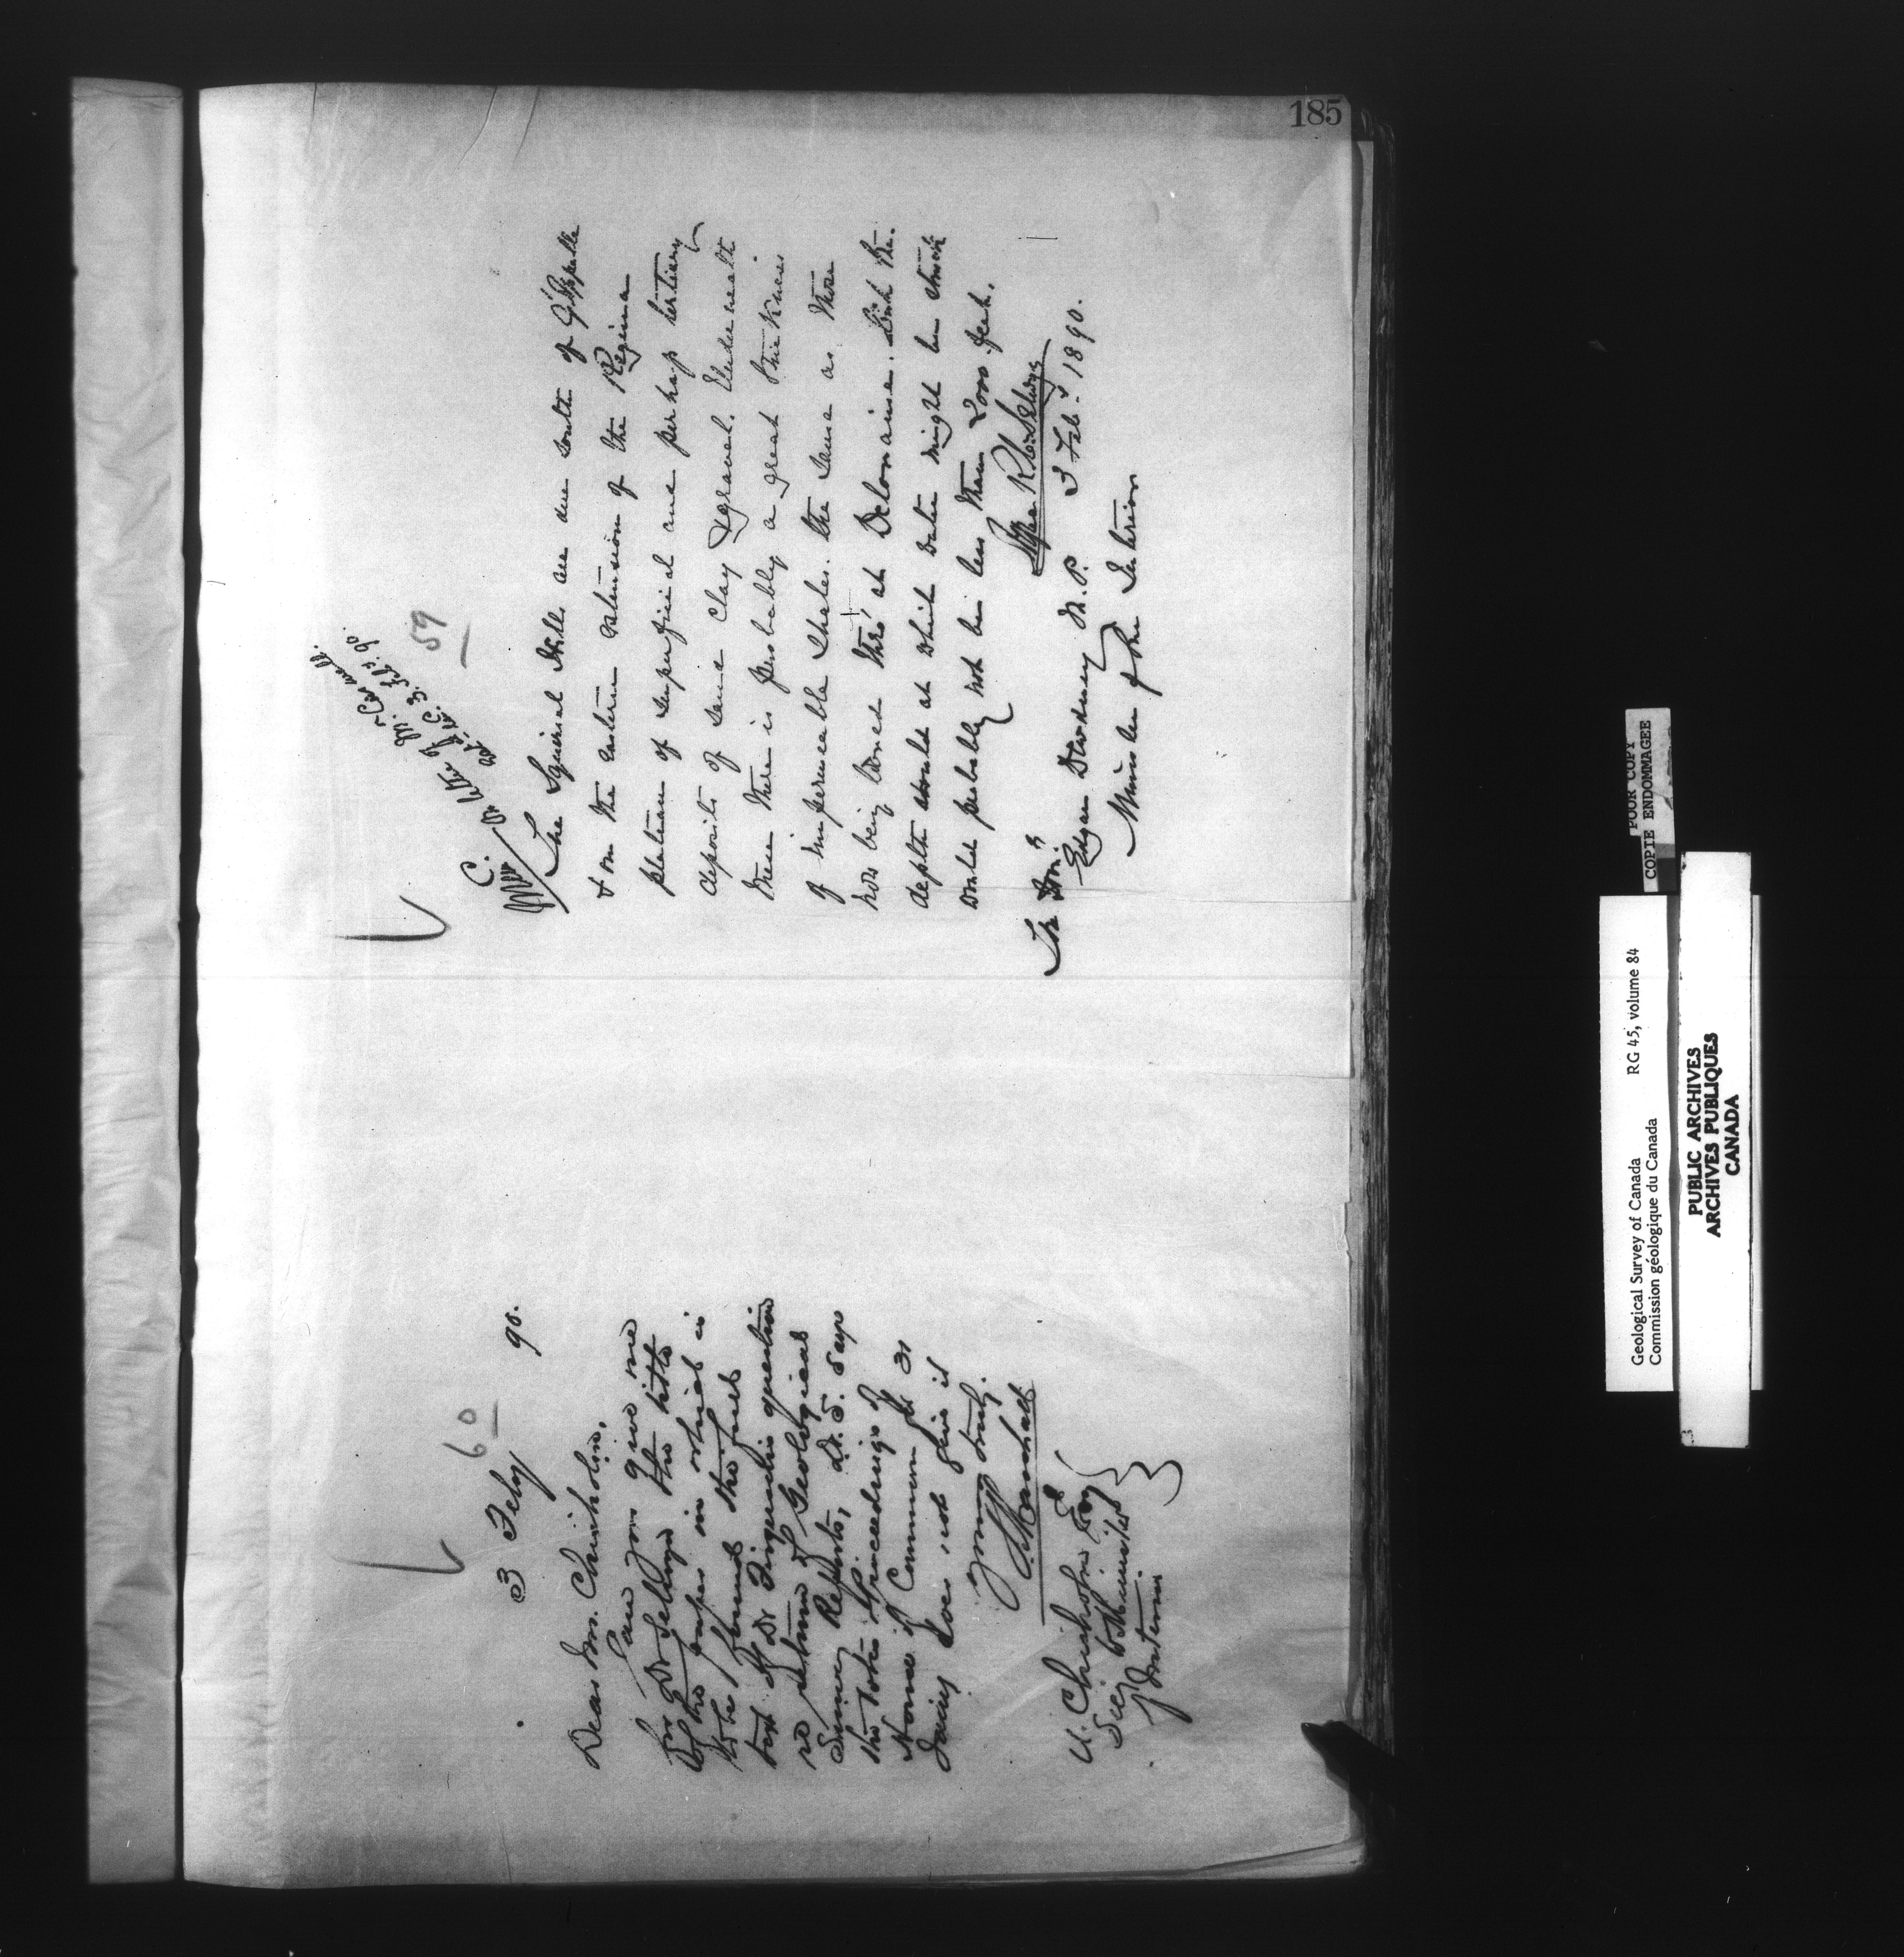 185
C.
On letter by Mr. Caswell.
3. Feby 90.
59
The Squirrel Hills are due south of Q'Appelle
& on the eastern extension of the Regina
plateau of superficial and perhaps tertiary
deposits of sand clay & gravel. Underneath
these there is probably a great thickness
of impermeable shales. the same as those
now being bored thro' at Deloraine. but the
depth at which water might be struck
would probably not be less than 2000 feet.
Alfred R. C. Selwyn
3 Feb. 1890.
The Hon.
Edgar Dewdney M.P.
Minister of the Interior
60
3 Feby 90.
Dear Mr. Chisholm,
Can you give me
for Dr Selwyn the title
of the paper in which is
to be found the full
text of Dr Ferguson's question
re return of Geological
Survey Reports, Dr. S. says
the Votes & Proceedings of
House of Commons of 31
Jany does not give it
Yours truly.
Marshall
A. Chisholm Esq
Secy to Minister
Interior
POOR COPY
COPIE ENDOMMAGEE
Geological Survey of Canada RG 45, volume 84
Commission géologique du Canada
PUBLIC ARCHIVES
ARCHIVES PUBLIQUES
CANADA